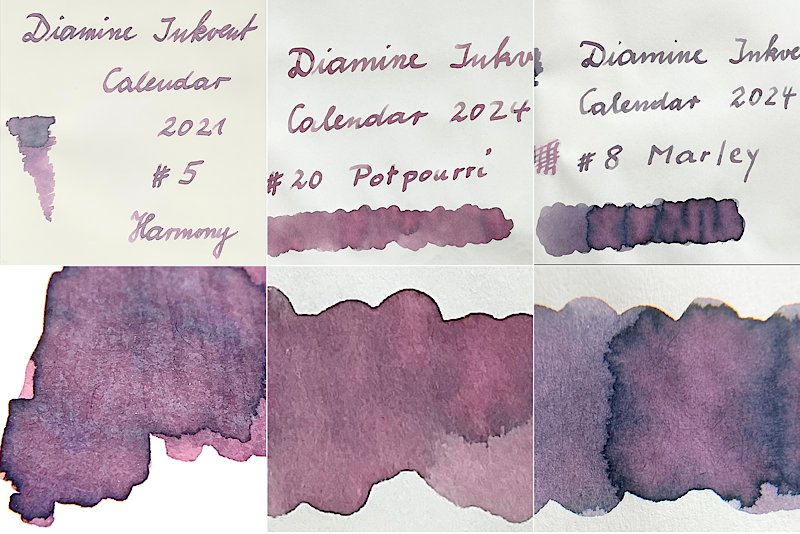 Diamine Inkvent
Calendar
2021
#5
Harmony
Diamine Inkv
Calendar 2024
#20 Potpourri
Diamine Inkve
Calendar 2024
#8 Marley